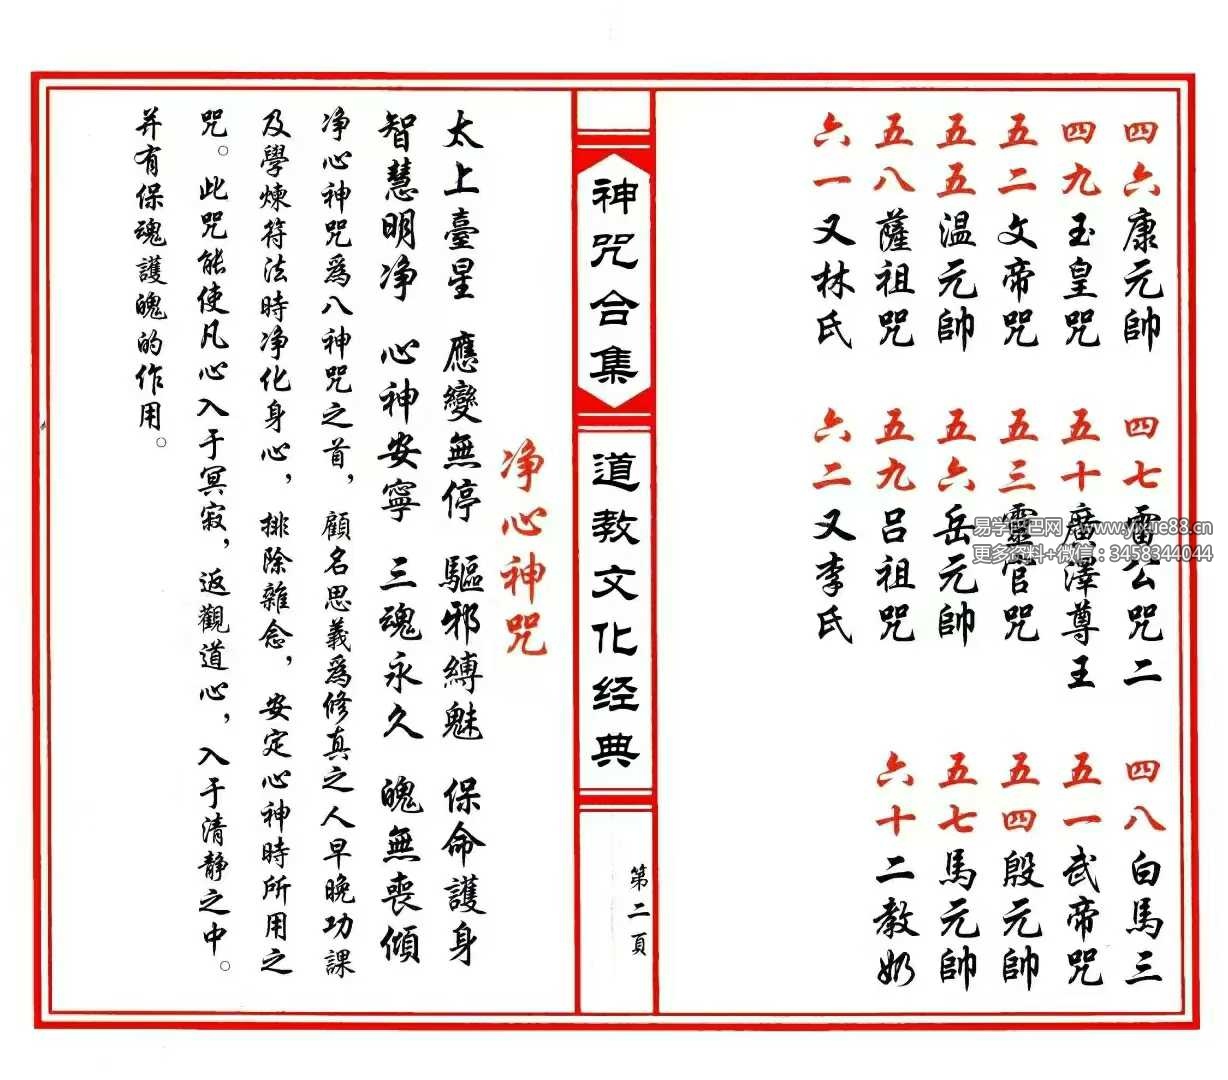 四六康元帥
四七雷公咒二
四八白馬三
四九玉皇咒
五十廣澤尊王
五一武帝咒
五二文帝咒
五三靈官咒
五四殷元帥
五五温元帥
五六岳元帥
五七馬元帥
五八薩祖咒
五九吕祖咒
六十二教奶
六一又林氏
六二又李氏
神咒合集
道教文化经典
第二頁
净心神咒
太上臺星 應變無停 驅邪縛魅 保命護身
智慧明净 心神安寧 三魂永久 魄無喪傾
净心神咒爲八神咒之首，顧名思義爲修真之人早晚功課
及學煉符法時净化身心，排除雜念，安定心神時所用之
咒。此咒能使凡心入于冥寂，返觀道心，入于清静之中。
并有保魂護魄的作用。
易学巴巴网 www.yixue88.cn
更多资料+微信：3458344044